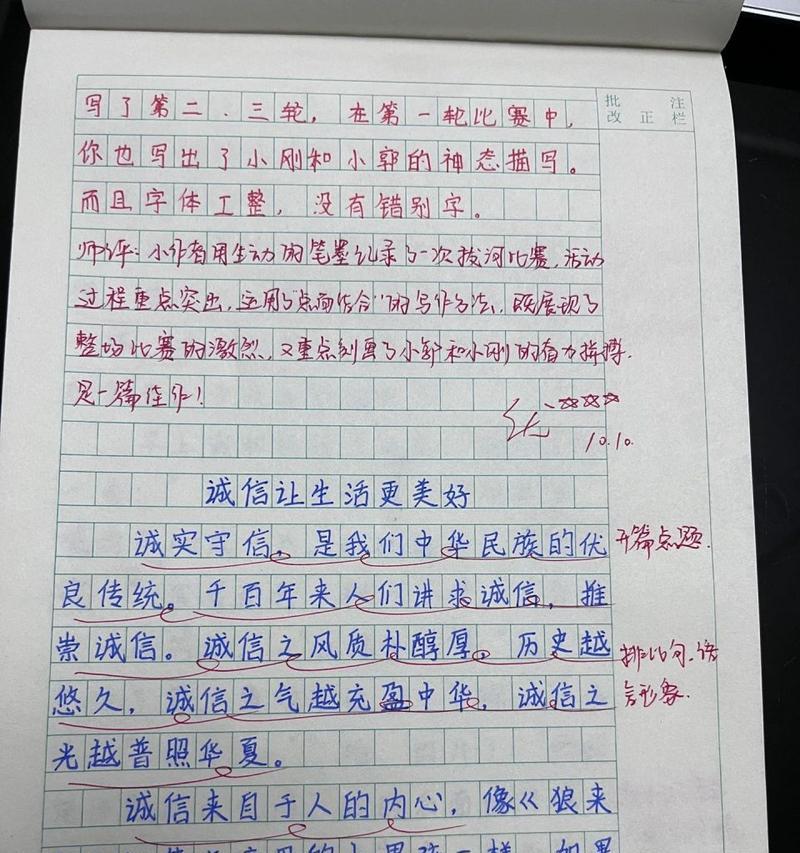 批 注
改 正 栏
写了第二、三轮，在第一轮比赛中，
你也写出了小刚和小郭的神态描写。
而且字体工整，没有错别字。
师评：小作者用生动的笔墨记录了一次拔河比赛，活动
过程重点突出，运用了“点面结合”的写作方法，既展现了
整场比赛的激烈，又重点刻画了小郭和小刚的奋力拼搏，
是一篇佳作！
优☆☆☆
10.10.
诚信让生活更美好
诚实守信，是我们中华民族的优
开篇点题.
良传统。千百年来人们讲求诚信，推
崇诚信。诚信之风质朴醇厚，历史越
排比句、语
悠久，诚信之气越充盈中华，诚信之
言形象.
光越普照华夏。
诚信来自于人的内心，像《狼来
的小男孩一样，如果